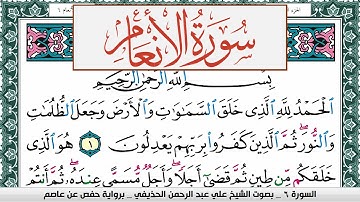 سُورَةُ الأَنعَامِ
بِسْمِ اللَّهِ الرَّحْمَٰنِ الرَّحِيمِ
الْحَمْدُ لِلَّهِ الَّذِي خَلَقَ السَّمَاوَاتِ وَالْأَرْضَ وَجَعَلَ الظُّلُمَاتِ
وَالنُّورَ ثُمَّ الَّذِينَ كَفَرُوا بِرَبِّهِمْ يَعْدِلُونَ ١ هُوَ الَّذِي
خَلَقَكُم مِّن طِينٍ ثُمَّ قَضَىٰ أَجَلًا وَأَجَلٌ مُّسَمًّى عِندَهُ ثُمَّ أَنتُمْ
السورة ٦ _ بصوت الشيخ علي عبد الرحمن الحذيفي _ برواية حفص عن عاصم